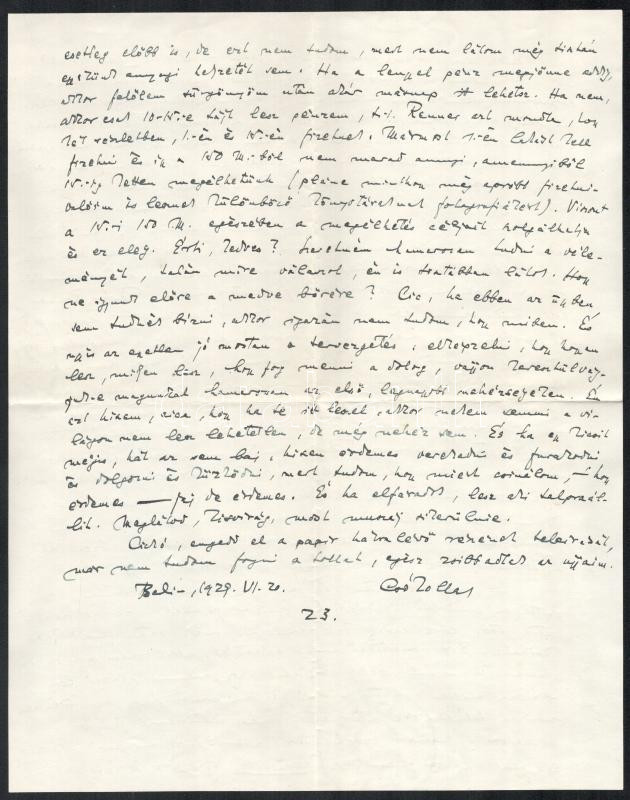 esetleg előbb is, de ezt nem tudom, mert nem látom még tisztán
anyagi helyzetét sem. Ha a lengyel pénz megjönne addig,
akkor felőlem sürgönyöm után akár másnap lehetsz. Ha nem,
akkor csak 10-15-e táján lesz pénzem, t.i. Renner azt mondta, hogy
két részletben, 1-én és 15-én fizetnek. Márpost 1-én lakást kell
fizetni és így a 150 M.-ból nem marad annyi, amennyiből
15-ig ketten megélhetünk (pláne minthogy még apróbb fizetni-
valóim is lesznek különböző könyvtáraknak fotografiákért). Viszont
a 15-i 150 M. egészében a megélhetés céljait szolgálhatja
és ez elég. Érti, kedves? Szeretném hamarosan tudni a véle-
ményét, talán mire válaszol, én is tisztábban látok. Hogy
ne igyunk előre a medve bőrére? Cic, ha ebben az ügyben
sem tudnék bízni, akkor igazán nem tudom, hogy miben. És
úgyis az egyetlen jó mostan a tervezgetés, elképzelni, hogy hogyan
lesz, milyen lesz, hogy fog menni a dolog, vajjon keresztülvág-
juk-e magunkat hamarosan az első, legnagyobb nehézségeken. Én
azt hiszem, cica, hogy ha te itt leszel, akkor nekem semmi a vi-
lágon nem lesz lehetetlen, de még nehéz sem. És ha egy kicsit
mégis, hát az sem baj, hiszen érdemes verekedni és furakodni
és dolgozni és küzködni, mert tudom, hogy miért csinálom, — hogy
érdemes — de érdemes. És ha elfáradok, lesz aki talpraál-
lít. Meglátod, kisvirág, most muszáj sikerülnie.
Cickó, engedd el a papír hátralevő részének teleírását,
már nem tudom fogni a tollat, egész zsibbadtak az ujjaim.
Berlin, 1929. VI. 20. Csókollak
23.